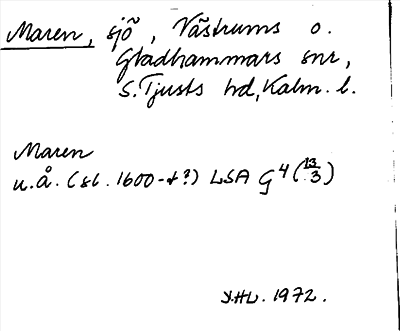 Maren, sjö, Västrums o.
Gladhammars snr,
S. Tjusts hd, Kalm. l.
Maren
u.å. (sl. 1600-t?) LSA G4 (13/3)
1972.